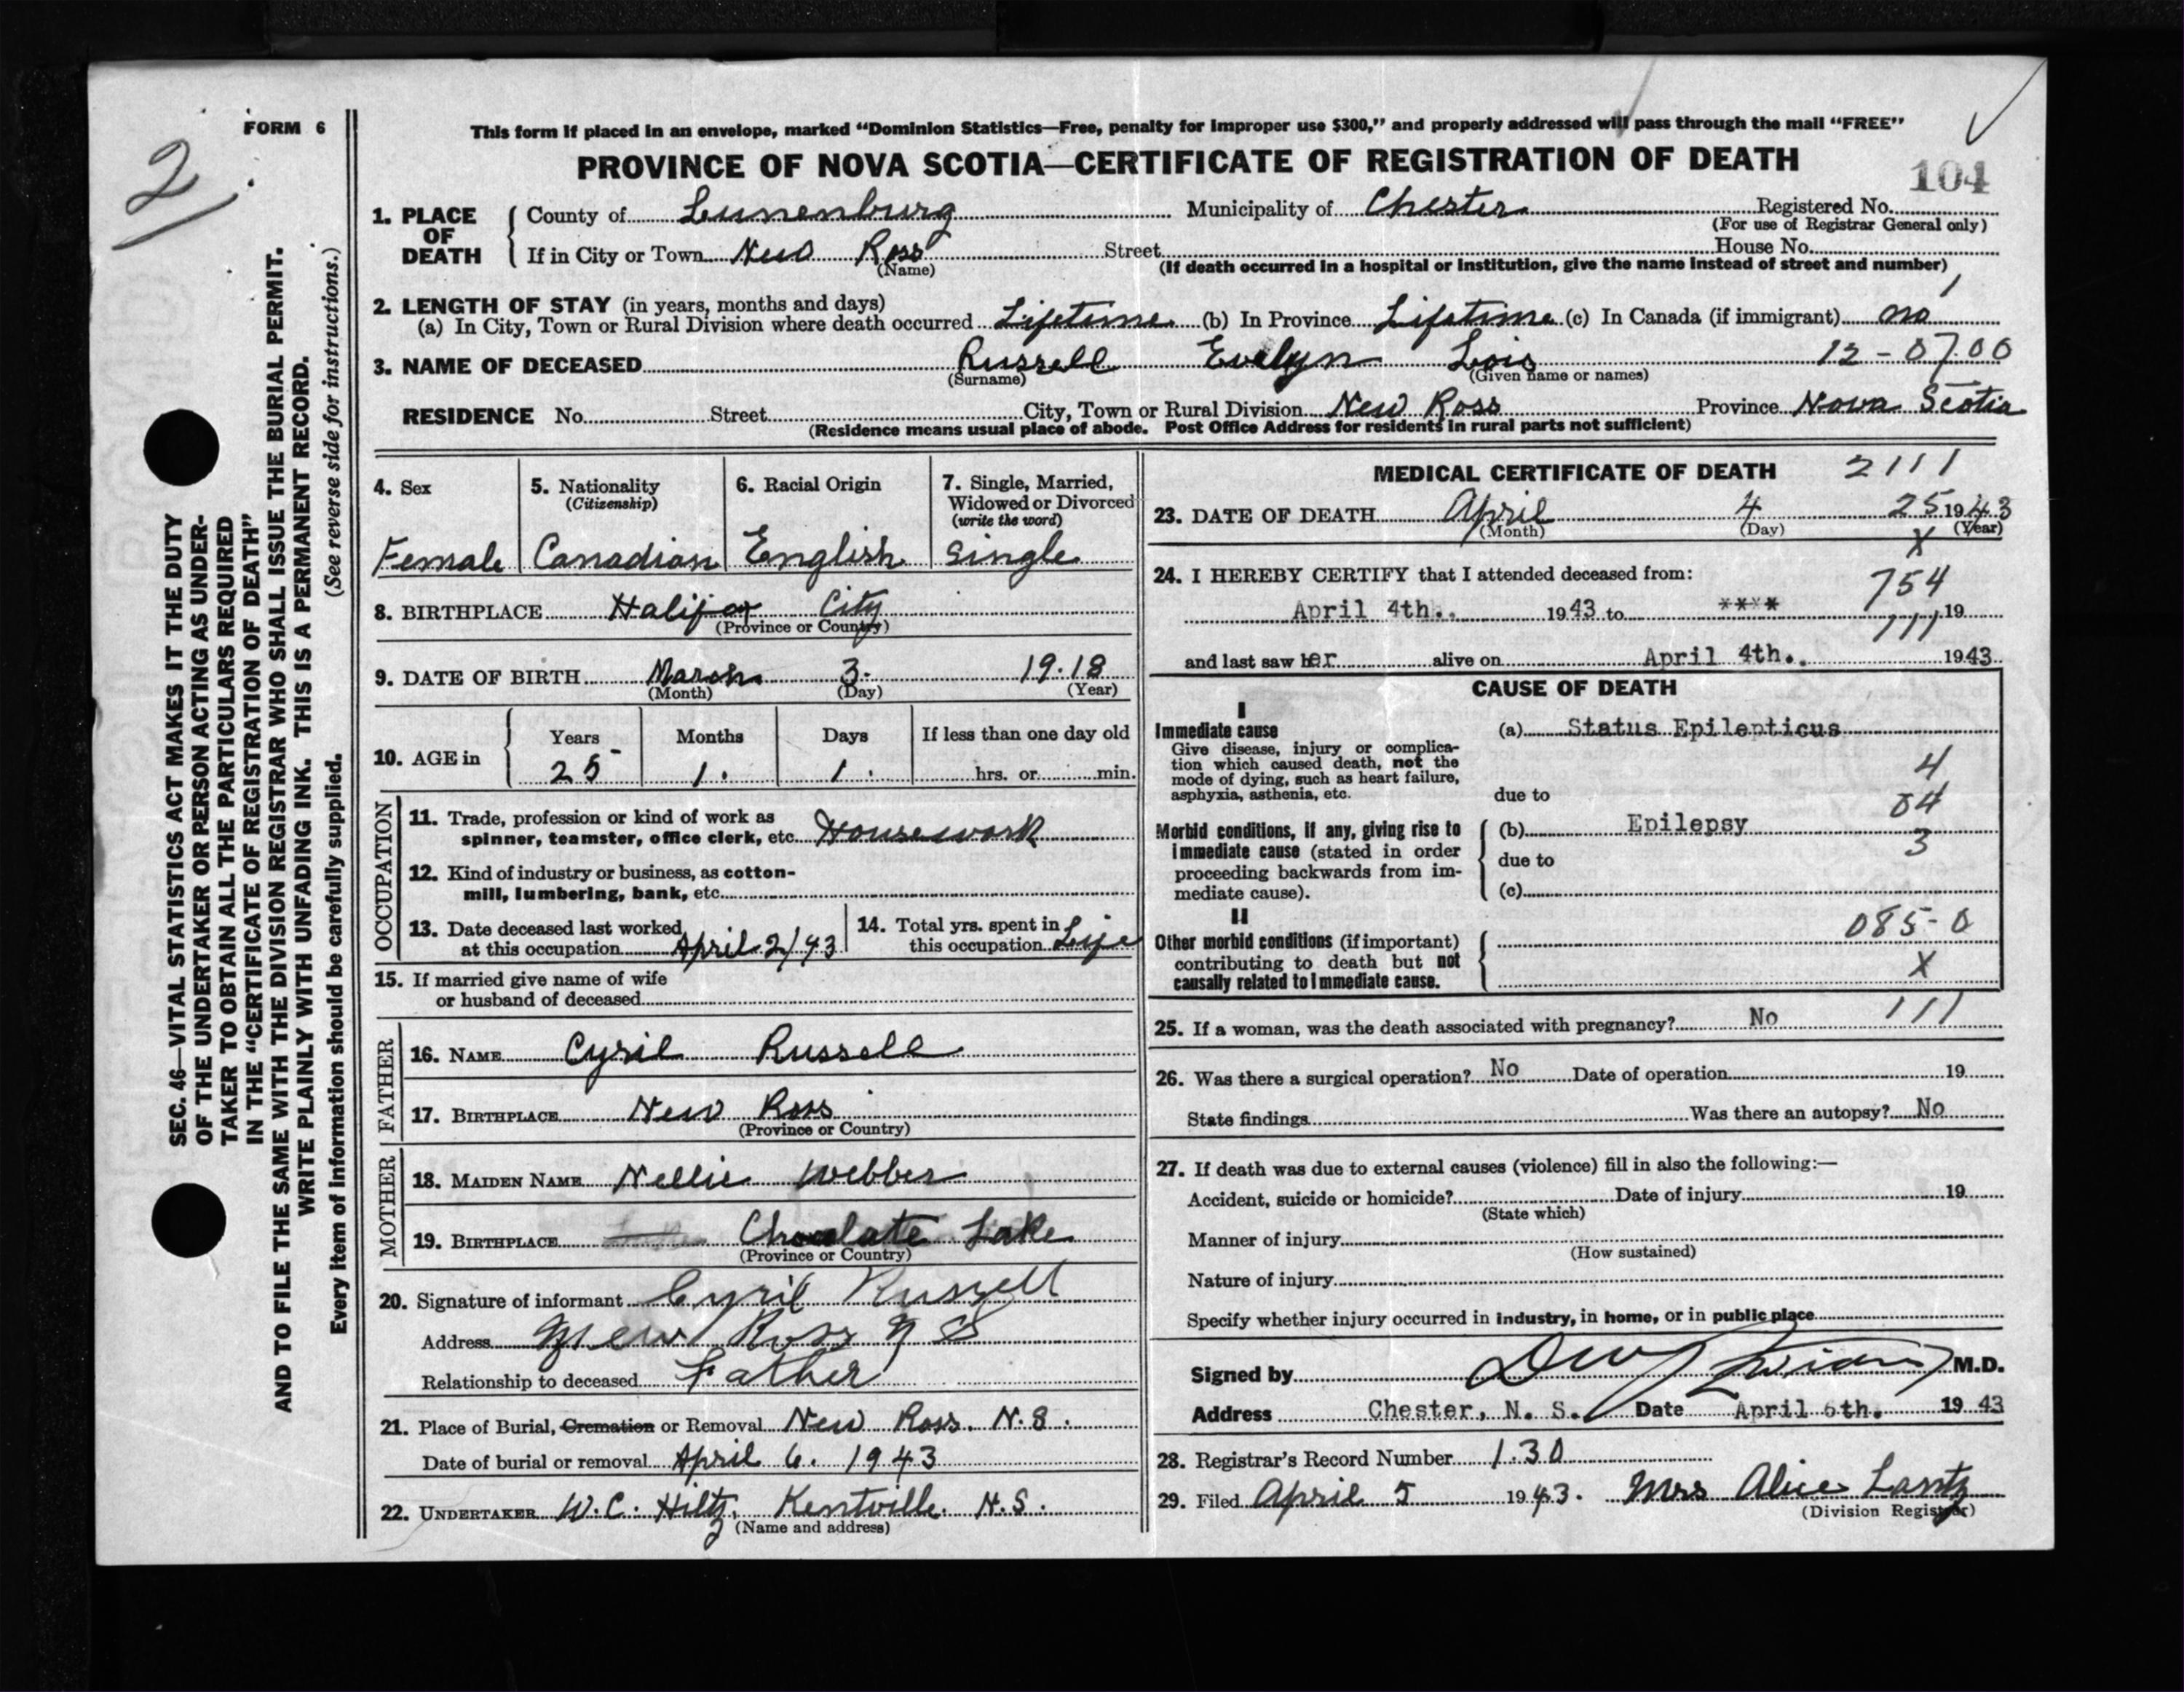 FORM 6
2
This form if placed in an envelope, marked "Dominion Statistics—Free, penalty for improper use $300," and properly addressed will pass through the mail "FREE"
PROVINCE OF NOVA SCOTIA—CERTIFICATE OF REGISTRATION OF DEATH
104
1. PLACE OF DEATH
County of Lunenburg Municipality of Chester Registered No.
(For use of Registrar General only)
If in City or Town New Ross Street House No.
(Name) (If death occurred in a hospital or institution, give the name instead of street and number)
2. LENGTH OF STAY (in years, months and days)
(a) In City, Town or Rural Division where death occurred Lifetime (b) In Province Lifetime (c) In Canada (if immigrant) no
3. NAME OF DECEASED Russell Evelyn Lois 12-0700
(Surname) (Given name or names)
RESIDENCE No. Street City, Town or Rural Division New Ross Province Nova Scotia
(Residence means usual place of abode. Post Office Address for residents in rural parts not sufficient)
4. Sex
Female
5. Nationality
(Citizenship)
Canadian
6. Racial Origin
English
7. Single, Married,
Widowed or Divorced
(write the word)
Single
8. BIRTHPLACE Halifax City
(Province or Country)
9. DATE OF BIRTH March 3. 1918
(Month) (Day) (Year)
10. AGE in
Years Months Days If less than one day old
25 1. 1. hrs. or min.
OCCUPATION
11. Trade, profession or kind of work as
spinner, teamster, office clerk, etc. Housework
12. Kind of industry or business, as cotton-
mill, lumbering, bank, etc.
13. Date deceased last worked
at this occupation April 2/43
14. Total yrs. spent in
this occupation Life
15. If married give name of wife
or husband of deceased
FATHER
16. NAME Cyril Russell
17. BIRTHPLACE New Ross
(Province or Country)
MOTHER
18. MAIDEN NAME Nellie Webber
19. BIRTHPLACE Chocolate Lake
(Province or Country)
20. Signature of informant Cyril Russell
Address New Ross N S
Relationship to deceased Father
21. Place of Burial, Cremation or Removal New Ross. N.S.
Date of burial or removal April 6. 1943
22. UNDERTAKER W.C. Hiltz, Kentville. N.S.
(Name and address)
MEDICAL CERTIFICATE OF DEATH 2111
23. DATE OF DEATH April 4 25 1943
(Month) (Day) (Year)
X
24. I HEREBY CERTIFY that I attended deceased from:
754
April 4th. 1943 to **** 19
111
and last saw her alive on April 4th. 1943
CAUSE OF DEATH
I
Immediate cause
Give disease, injury or complica-
tion which caused death, not the
mode of dying, such as heart failure,
asphyxia, asthenia, etc.
(a) Status Epilepticus
4
due to
04
Morbid conditions, if any, giving rise to
immediate cause (stated in order
proceeding backwards from im-
mediate cause).
(b) Epilepsy
3
due to
(c)
II
Other morbid conditions (if important)
contributing to death but not
causally related to immediate cause.
085-0
X
25. If a woman, was the death associated with pregnancy? No 111
26. Was there a surgical operation? No Date of operation 19
State findings Was there an autopsy? No
27. If death was due to external causes (violence) fill in also the following:—
Accident, suicide or homicide? Date of injury 19
(State which)
Manner of injury
(How sustained)
Nature of injury
Specify whether injury occurred in industry, in home, or in public place
Signed by M.D.
Address Chester, N. S. Date April 6th. 1943
28. Registrar's Record Number 130
29. Filed April 5 1943. Mrs Alice Lantz
(Division Registrar)
SEC. 46—VITAL STATISTICS ACT MAKES IT THE DUTY
OF THE UNDERTAKER OR PERSON ACTING AS UNDER-
TAKER TO OBTAIN ALL THE PARTICULARS REQUIRED
IN THE "CERTIFICATE OF REGISTRATION OF DEATH"
AND TO FILE THE SAME WITH THE DIVISION REGISTRAR WHO SHALL ISSUE THE BURIAL PERMIT.
WRITE PLAINLY WITH UNFADING INK. THIS IS A PERMANENT RECORD.
Every item of information should be carefully supplied. (See reverse side for instructions.)